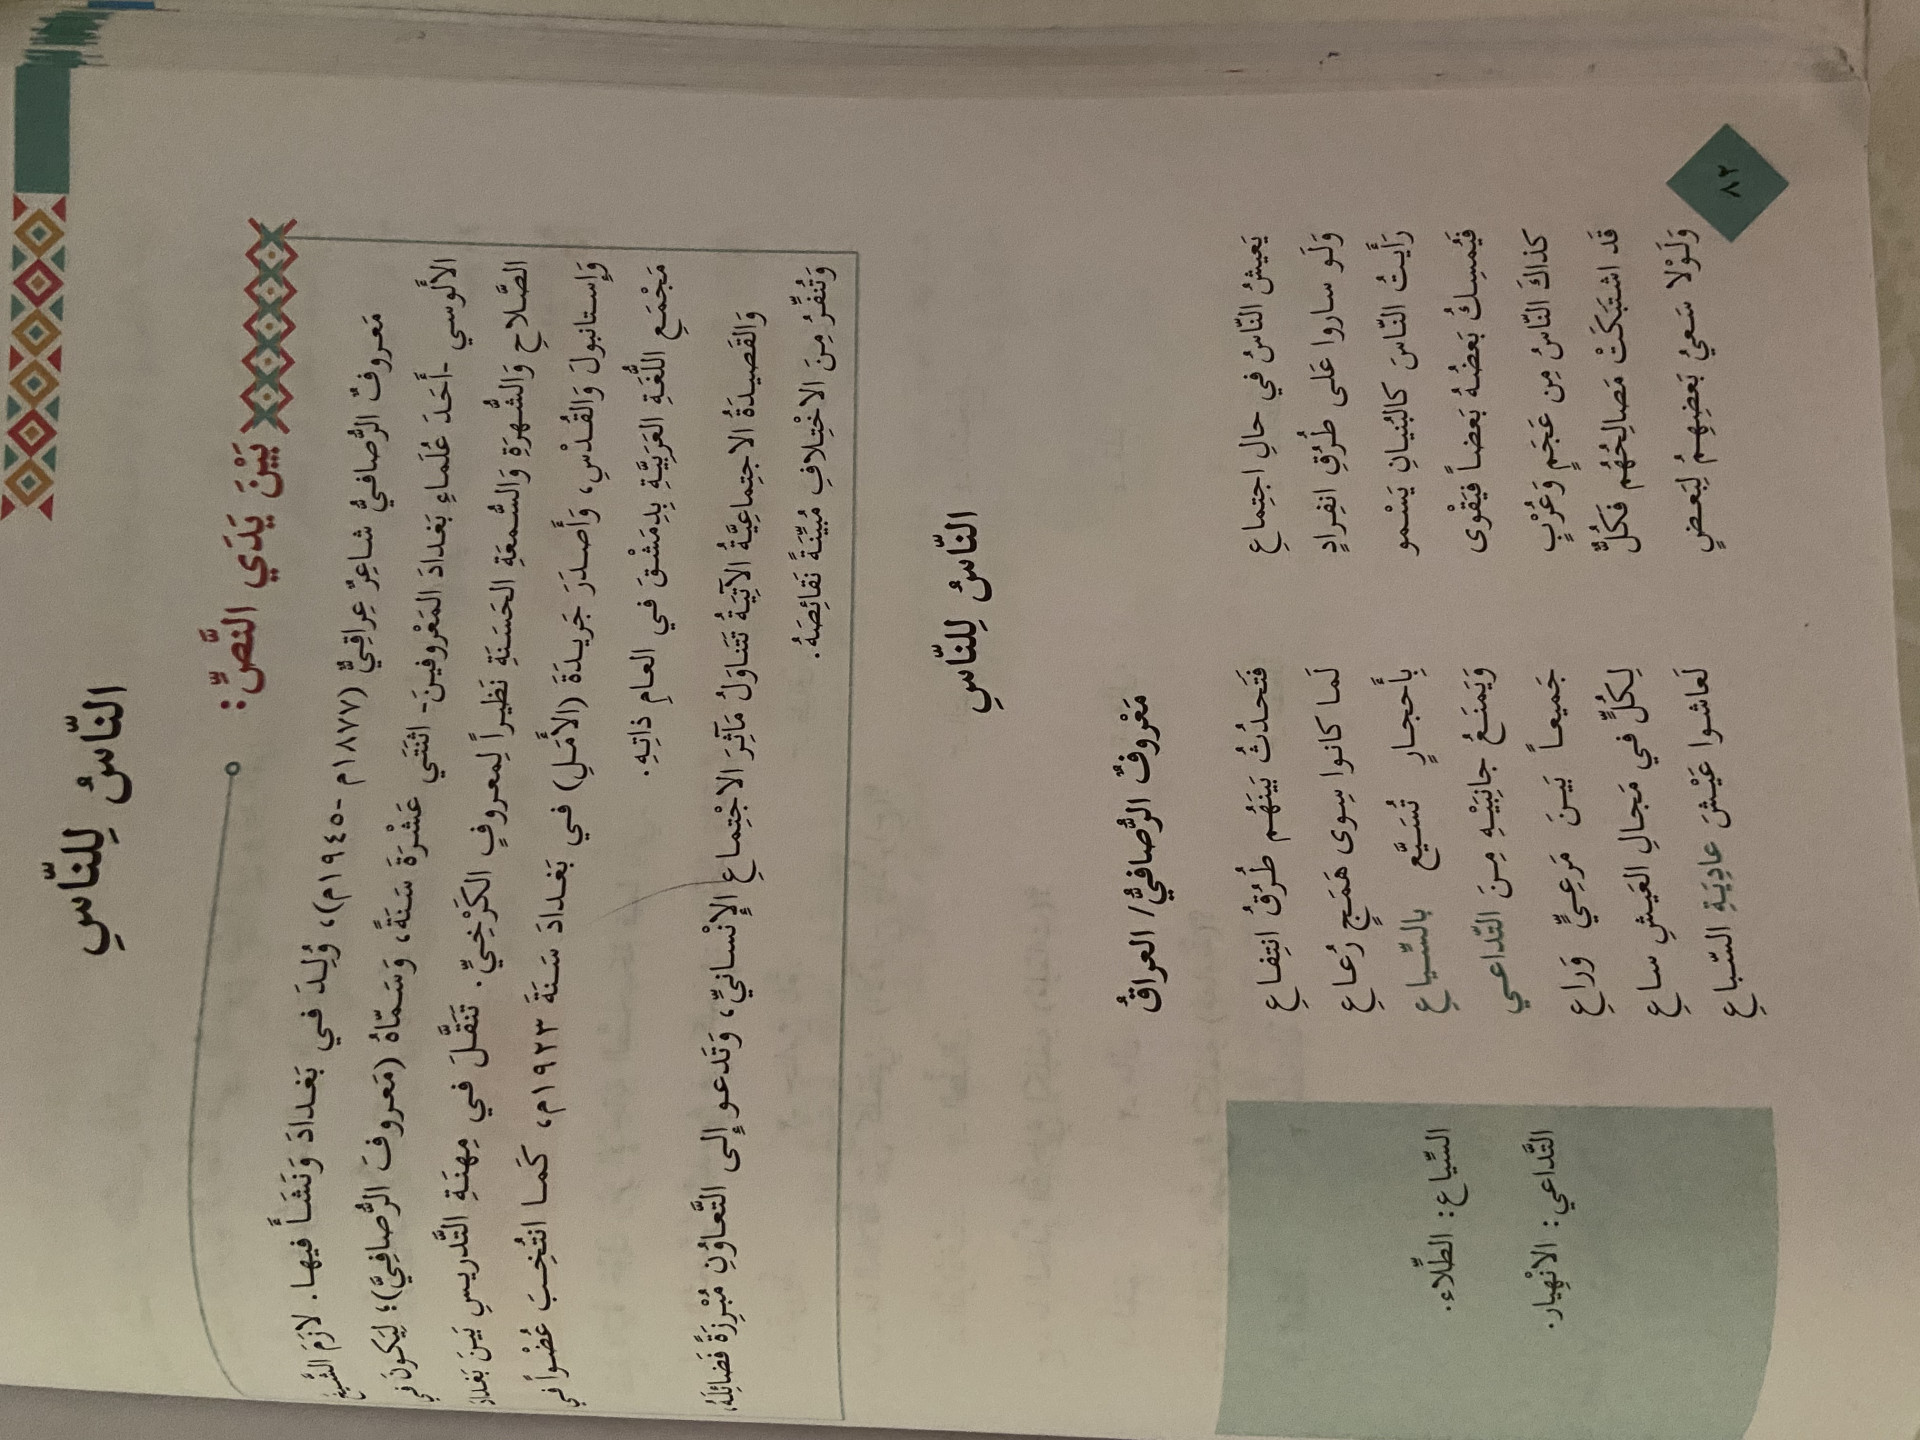 النّاسُ لِلنّاسِ
بَيْنَ يَدَيِ النَّصِّ:
مَعروفٌ الرُّصافيُّ شاعِرٌ عِراقِيٌّ (١٨٧٧م -١٩٤٥م)، وُلِدَ في بَغدادَ وَنَشَأَ فيها. لازَمَ الشَّيخَ
الأَلوسي -أَحَدَ عُلَماءِ بَغدادَ المَعْروفينَ- اثنَتَي عَشْرَةَ سَنَةً، وَسَمّاهُ (مَعروفَ الرُّصافِيَّ)؛ لِيَكونَ في
الصَّلاحِ وَالشُّهرَةِ وَالسُّمعَةِ الحَسَنَةِ نَظيراً لِمعروفٍ الكَرْخِيِّ. تَنَقَّلَ في مِهنَةِ التَّدريسِ بَينَ بَغدادَ
وَإستانبولَ وَالقُدْسِ، وَأَصدَرَ جَريدَةَ (الأَمَلِ) في بَغدادَ سَنَةَ ١٩٢٣م، كَما انتُخِبَ عُضْواً في
مَجْمَعِ اللُّغَةِ العَرَبِيَّةِ بِدِمَشْقَ في العامِ ذاتِهِ.
وَالقَصيدَةُ الاجتِماعِيَّةُ الآتِيَةُ تَتَناوَلُ مَآثِرَ الاجْتِماعِ الإِنْسانيِّ، وَتَدعو إِلى التَّعاوُنِ مُبْرِزَةً فَضائِلَهُ،
وَتُنفِّرُ مِنَ الاخْتِلافِ مُبيِّنَةً نَقائِصَهُ.
النّاسُ لِلنّاسِ
مَعْروفٌ الرُّصافيُّ/ العراقُ
يَعيشُ النّاسُ في حالِ اجتِماعِ فَتَحدُثُ بَينَهُم طُرُقُ انتِفاعِ
وَلَو ساروا عَلى طُرُقِ انفِرادٍ لَما كانوا سِوى هَمَجٍ رُعاعِ
رَأَيتُ النّاسَ كالبُنيانِ يَسْمو بِأَحجارٍ تُسَيَّع بالسِّياعِ
فَيُمسِكُ بَعضُهُ بَعضاً فَيَقْوى وَيَمنَعُ جانِبَيْهِ مِنَ التّداعي
كذاكَ النّاسُ مِن عَجَمٍ وَعُرْبٍ جَميعاً بَينَ مَرعِيٍّ وَراعِ
قَد اشتَبَكَتْ مَصالِحُهُم فَكُلٌّ لِكُلٍّ في مَجالِ العَيشِ ساعِ
وَلَوْلا سَعيُ بَعضِهِمُ لِبَعضٍ لَعاشوا عَيْشَ عادِيَةِ السّباعِ
السِّياع: الطِّلاء.
التَّداعي: الانْهِيار.
٨٢